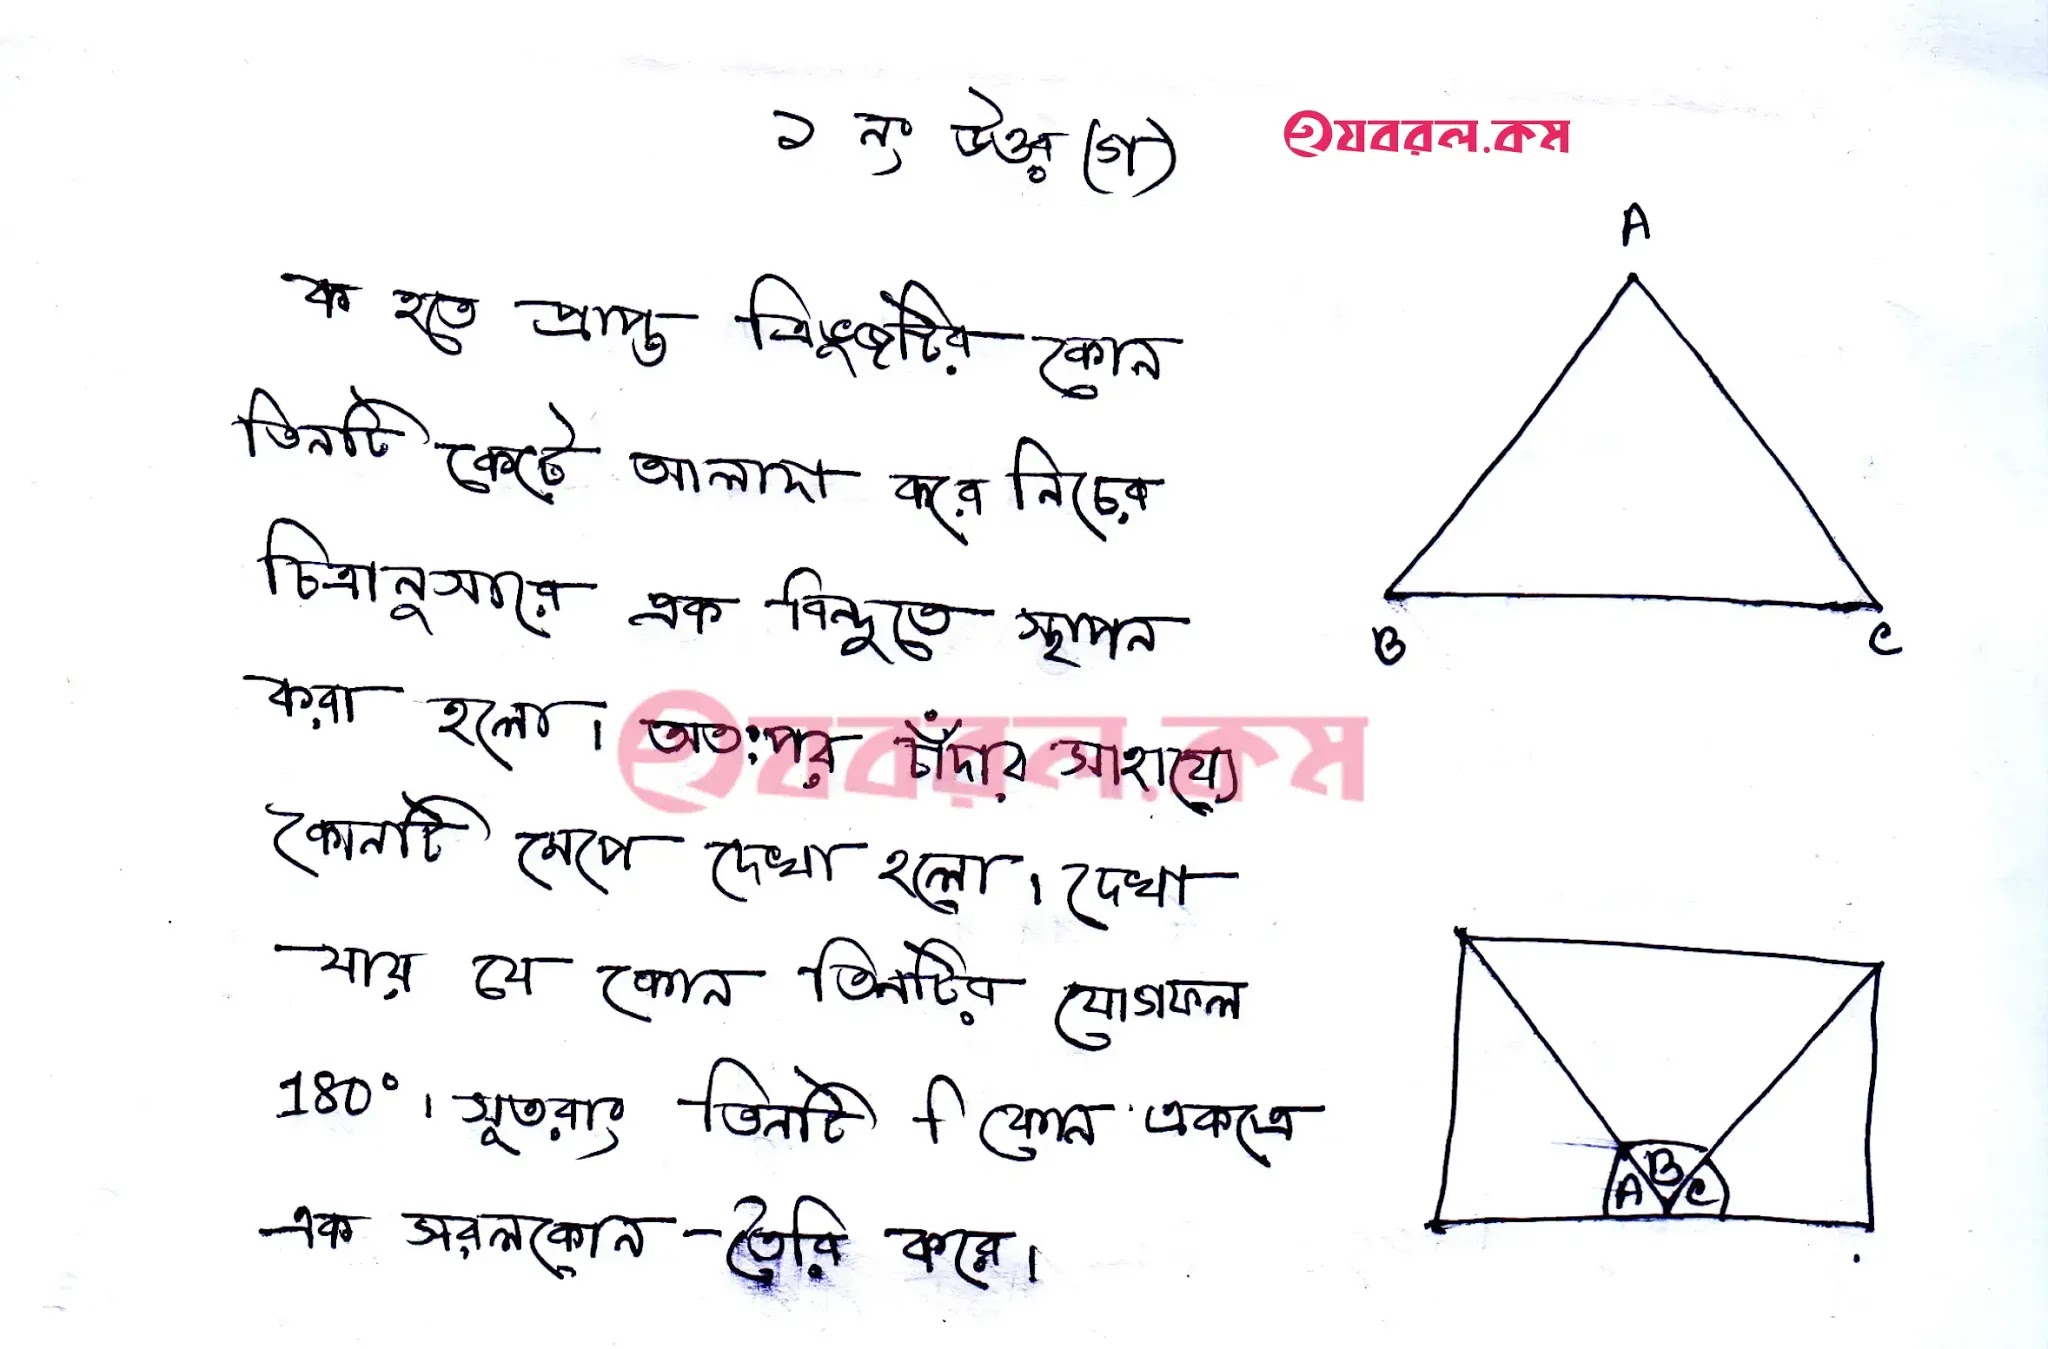 ১ নং উত্তর (গ)
হযবরল.কম
A
ক হতে প্রাপ্ত ত্রিভুজটির কোন
তিনটি কেটে আলাদা করে নিচের
চিত্রানুসারে এক বিন্দুতে স্থাপন
B
C
করা হলো। অতঃপর চাঁদার সাহায্যে
হযবরল.কম
কোনটি মেপে দেখা হলো। দেখা
যায় যে কোন তিনটির যোগফল
180°। সুতরাং তিনটি কোন একত্রে
A B C
এক সরলকোন তৈরি করে।